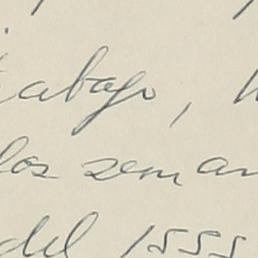 tabajo,
los seman
del 1555